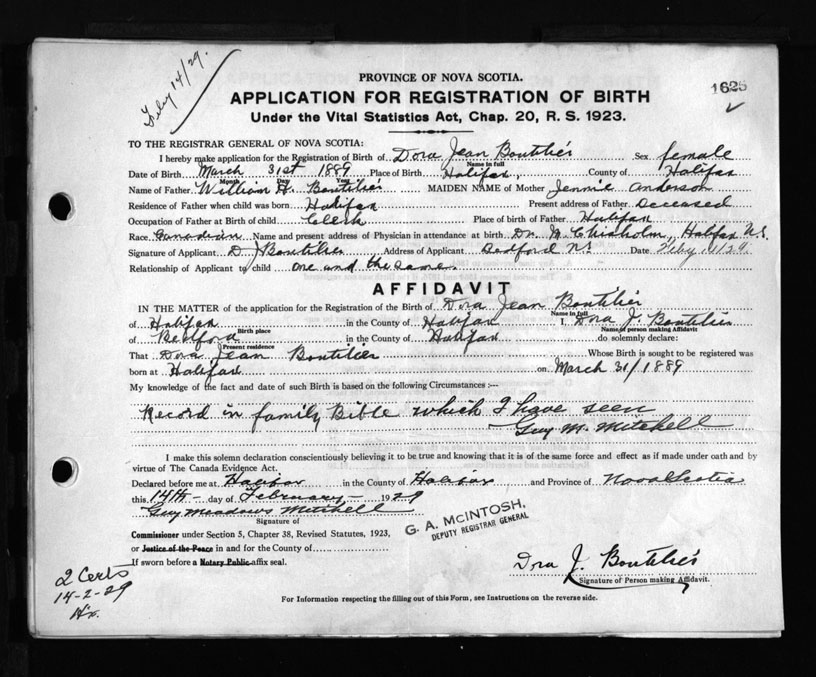 Feby 14/29.
PROVINCE OF NOVA SCOTIA.
1625
APPLICATION FOR REGISTRATION OF BIRTH
Under the Vital Statistics Act, Chap. 20, R. S. 1923.
TO THE REGISTRAR GENERAL OF NOVA SCOTIA:
I hereby make application for the Registration of Birth of Dora Jean Boutilier Sex female
Name in full
Date of Birth March 31st 1889 Place of Birth Halifax, County of Halifax
Month Day Year
Name of Father William H. Boutilier MAIDEN NAME of Mother Jennie Anderson
Residence of Father when child was born Halifax Present address of Father Deceased
Occupation of Father at Birth of child Clerk Place of birth of Father Halifax
Race Canadian Name and present address of Physician in attendance at birth Dr. M. Chisholm, Halifax N.S.
Signature of Applicant D. J Boutilier Address of Applicant Bedford N.S Date Feby 1/29.
Relationship of Applicant to child one and the same.
AFFIDAVIT
IN THE MATTER of the application for the Registration of the Birth of Dora Jean Boutilier
Name in full
of Halifax in the County of Halifax I, Dora J. Boutilier
Birth place Name of person making Affidavit
of Bedford in the County of Halifax do solemnly declare:
Present residence
That Dora Jean Boutilier Whose Birth is sought to be registered was
born at Halifax on March 31/1889
My knowledge of the fact and date of such Birth is based on the following Circumstances :—
Record in family Bible which I have seen
Guy M. Mitchell
I make this solemn declaration conscientiously believing it to be true and knowing that it is of the same force and effect as if made under oath and by
virtue of The Canada Evidence Act.
Declared before me at Halifax in the County of Halifax and Province of Nova Scotia
this 14th day of February 1929
Guy Meadows Mitchell
Signature of
G. A. McINTOSH,
DEPUTY REGISTRAR GENERAL
Commissioner under Section 5, Chapter 38, Revised Statutes, 1923,
or Justice of the Peace in and for the County of
If sworn before a Notary Public affix seal.
Dora J. Boutilier
Signature of Person making Affidavit.
2 Certs
14-2-29
For Information respecting the filling out of this Form, see Instructions on the reverse side.